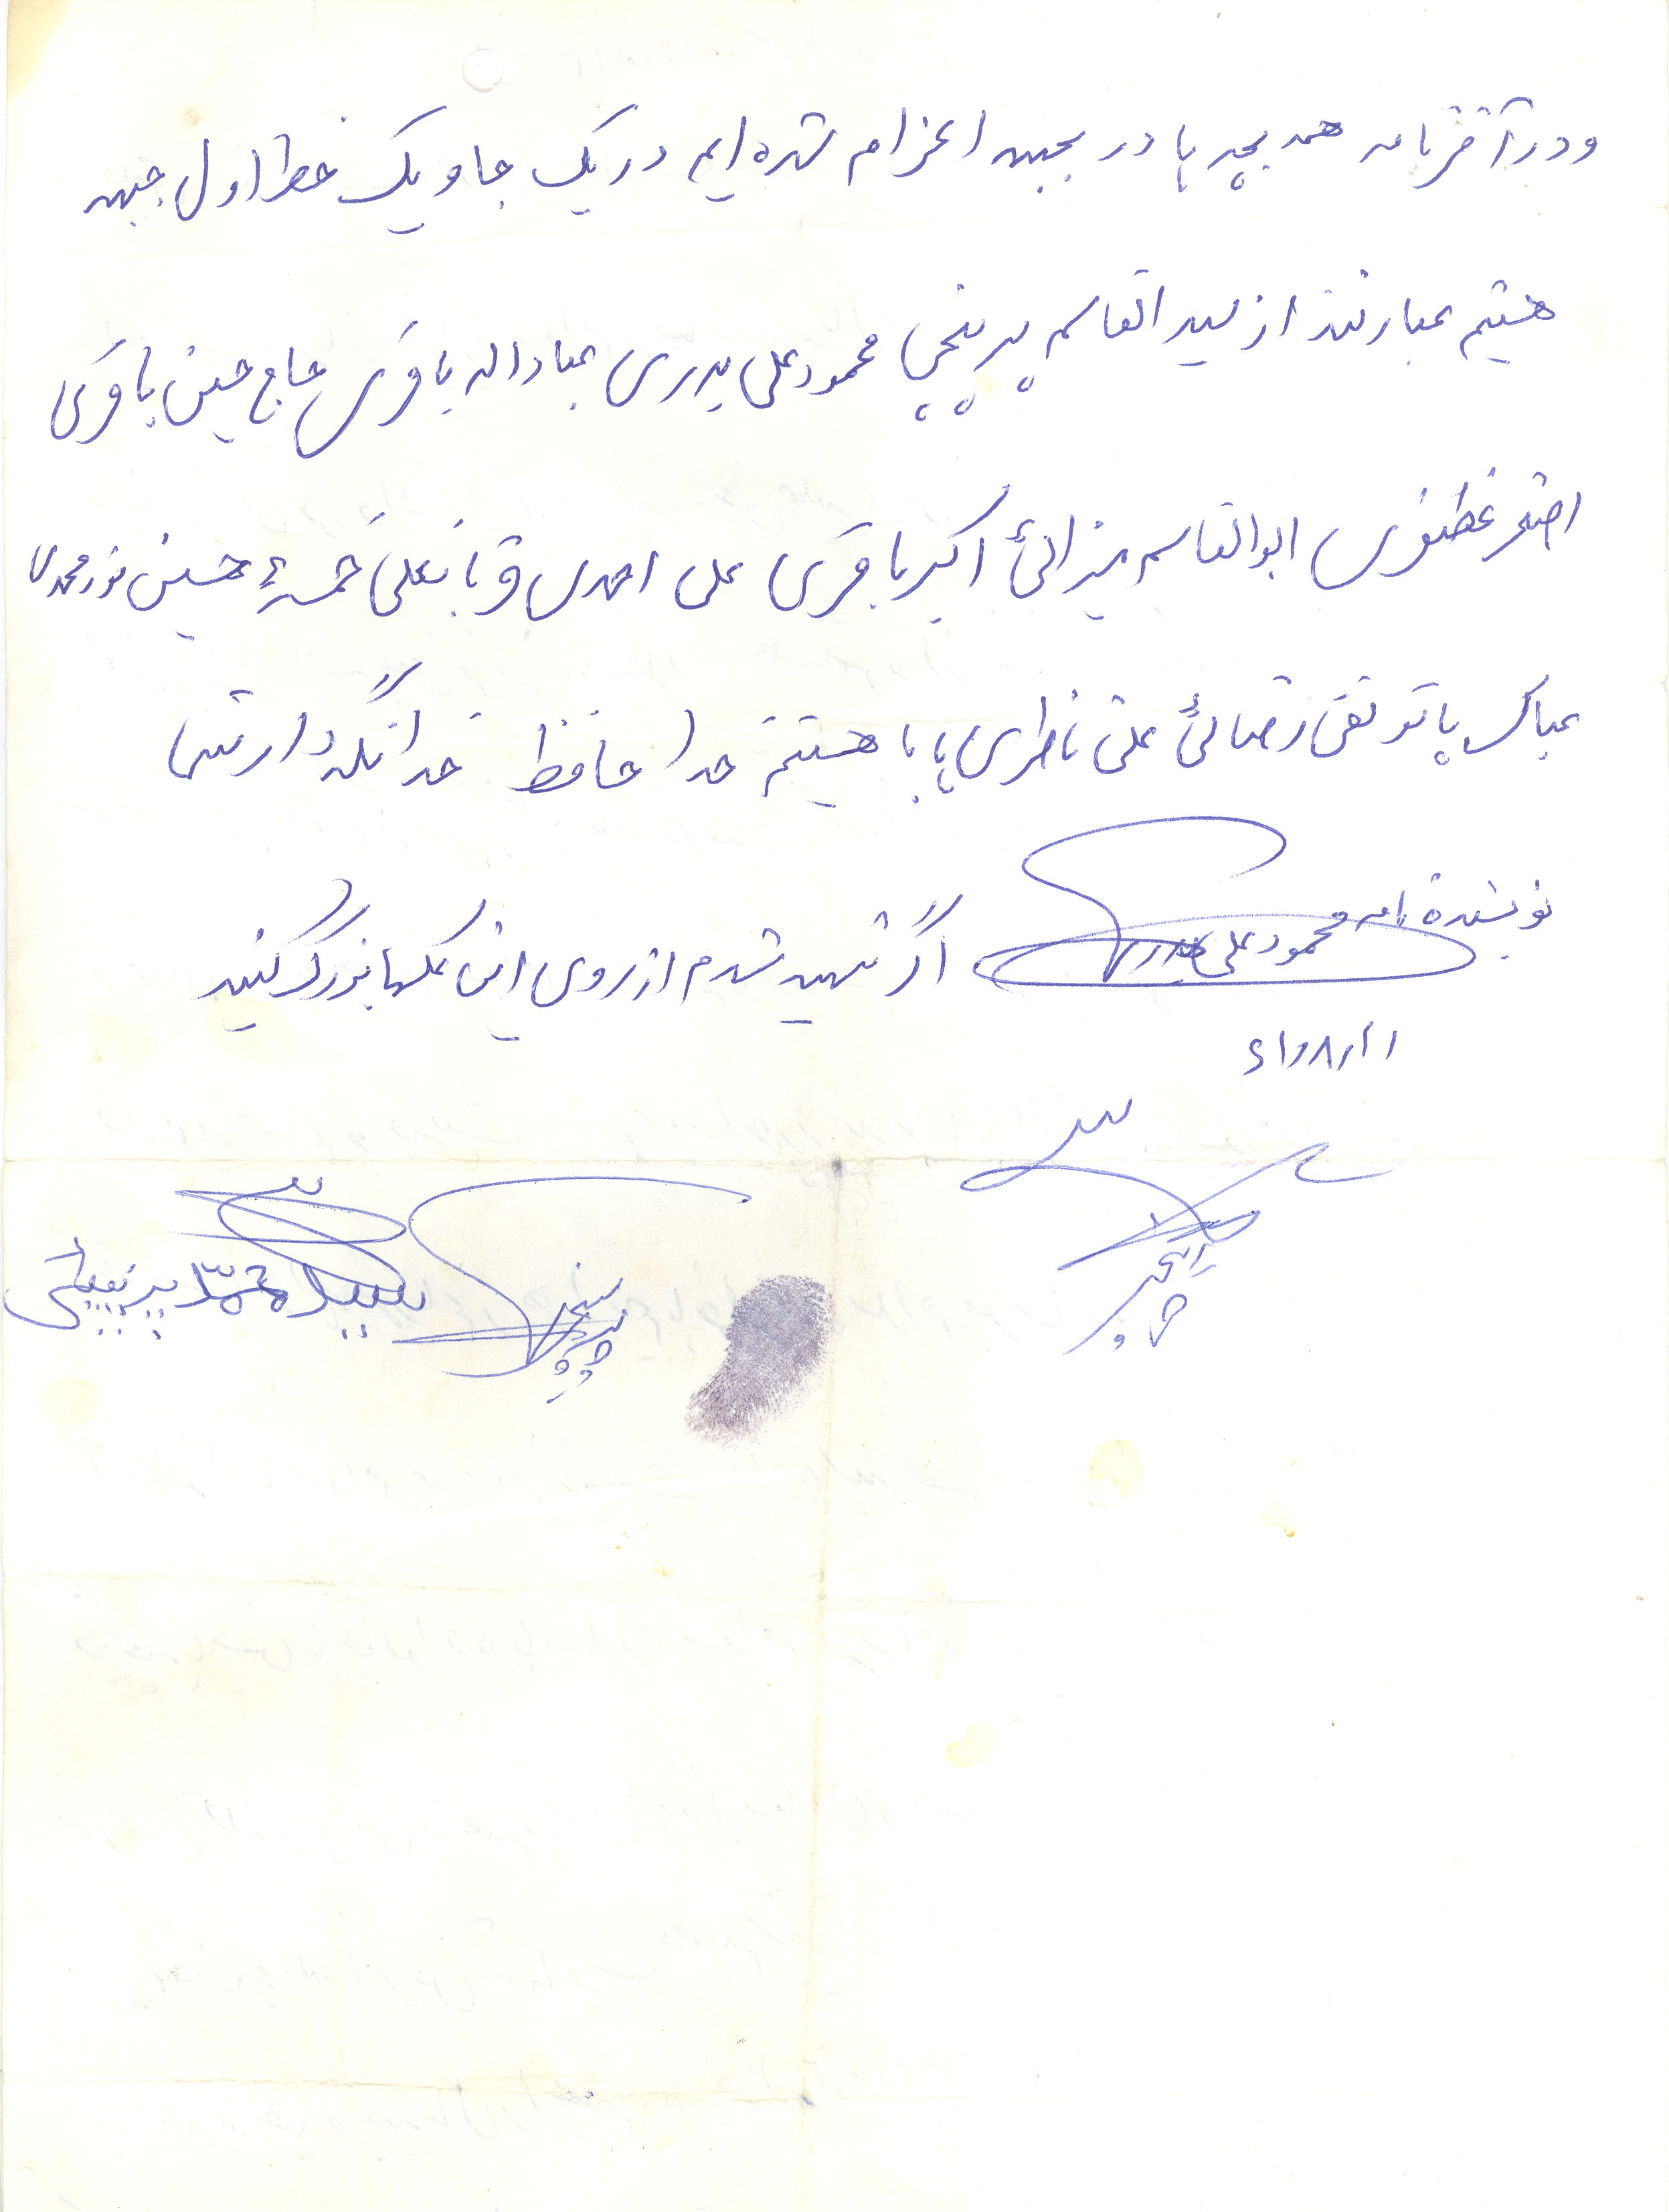 و در آخر نامه همه بچه ها در جبهه اعزام شده ایم در یک جا و یک خط اول جبهه
هستیم عبارتند از سید القاسم پرپنچی محمود علی بدری عباداله باقری حاج حسین باقری
اصغر غضنفری ابوالقاسم میزائی اکبر باقری علی احمدی قربانعلی خمسه حسین نورمحمدی
عباس پاتو تقی رضائی علی ناظری پابا هستیم خدا حافظ خدا نگهدار شما
نویسنده نامه محمود علی بدری
اگر شهید شدم از روی این عکسها بزرگ کنید
۶۱/۸/۱۱
سید محمد